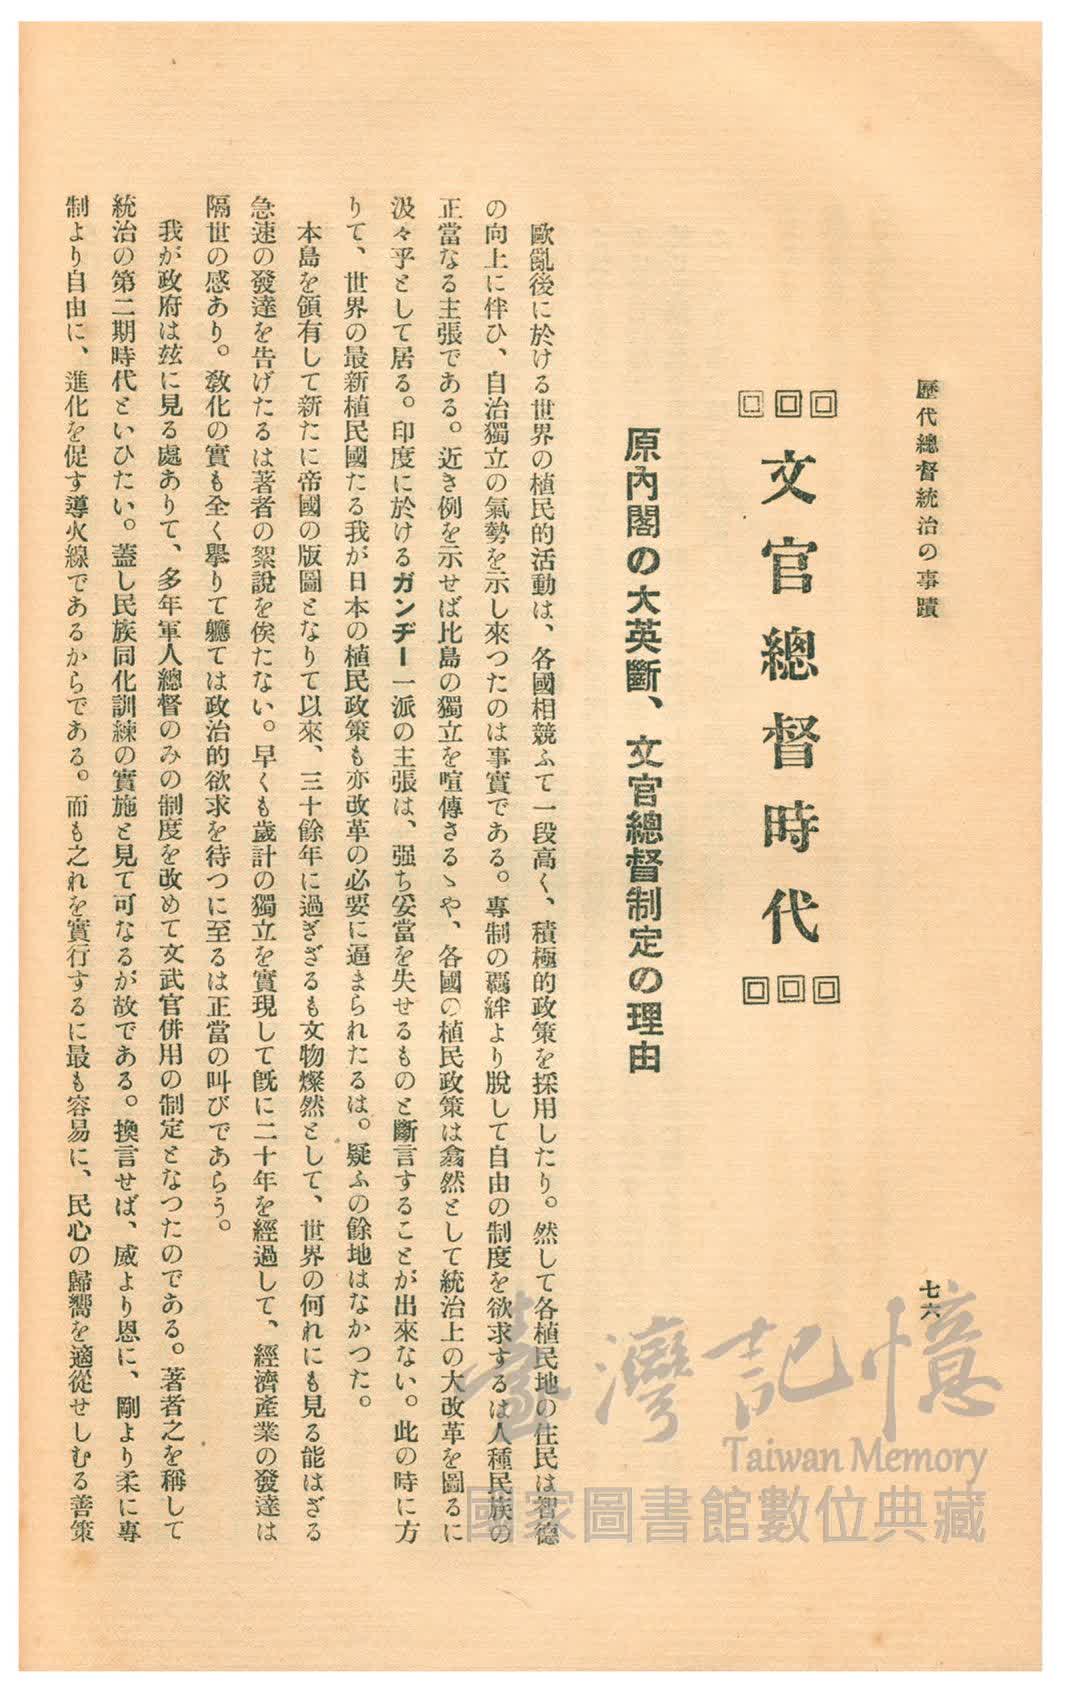 歷代總督統治の事蹟
七六
文官總督時代
原內閣の大英斷、文官總督制定の理由
歐亂後に於ける世界の植民的活動は、各國相競ふて一段高く、積極的政策を採用したり。然して各植民地の住民は智德
の向上に伴ひ、自治獨立の氣勢を示し來つたのは事實である。專制の羈絆より脫して自由の制度を欲求するは人種民族の
正當なる主張である。近き例を示せば比島の獨立を喧傳さるゝや、各國の植民政策は翕然として統治上の大改革を圖るに
汲々乎として居る。印度に於けるガンヂー一派の主張は、强ち妥當を失せるものと斷言することが出來ない。此の時に方
りて、世界の最新植民國たる我が日本の植民政策も亦改革の必要に逼まられたるは。疑ふの餘地はなかつた。
本島を領有して新たに帝國の版圖となりて以來、三十餘年に過ぎざるも文物燦然として、世界の何れにも見る能はざる
急速の發達を告げたるは著者の絮說を俟たない。早くも歲計の獨立を實現して旣に二十年を經過して、經濟產業の發達は
隔世の感あり。敎化の實も全く擧りて軈ては政治的欲求を待つに至るは正當の叫びであらう。
我が政府は玆に見る處ありて、多年軍人總督のみの制度を改めて文武官併用の制定となつたのである。著者之を稱して
統治の第二期時代といひたい。蓋し民族同化訓練の實施と見て可なるが故である。換言せば、威より恩に、剛より柔に專
制より自由に、進化を促す導火線であるからである。而も之れを實行するに最も容易に、民心の歸嚮を適從せしむる善策
臺灣記憶
Taiwan Memory
國家圖書館數位典藏